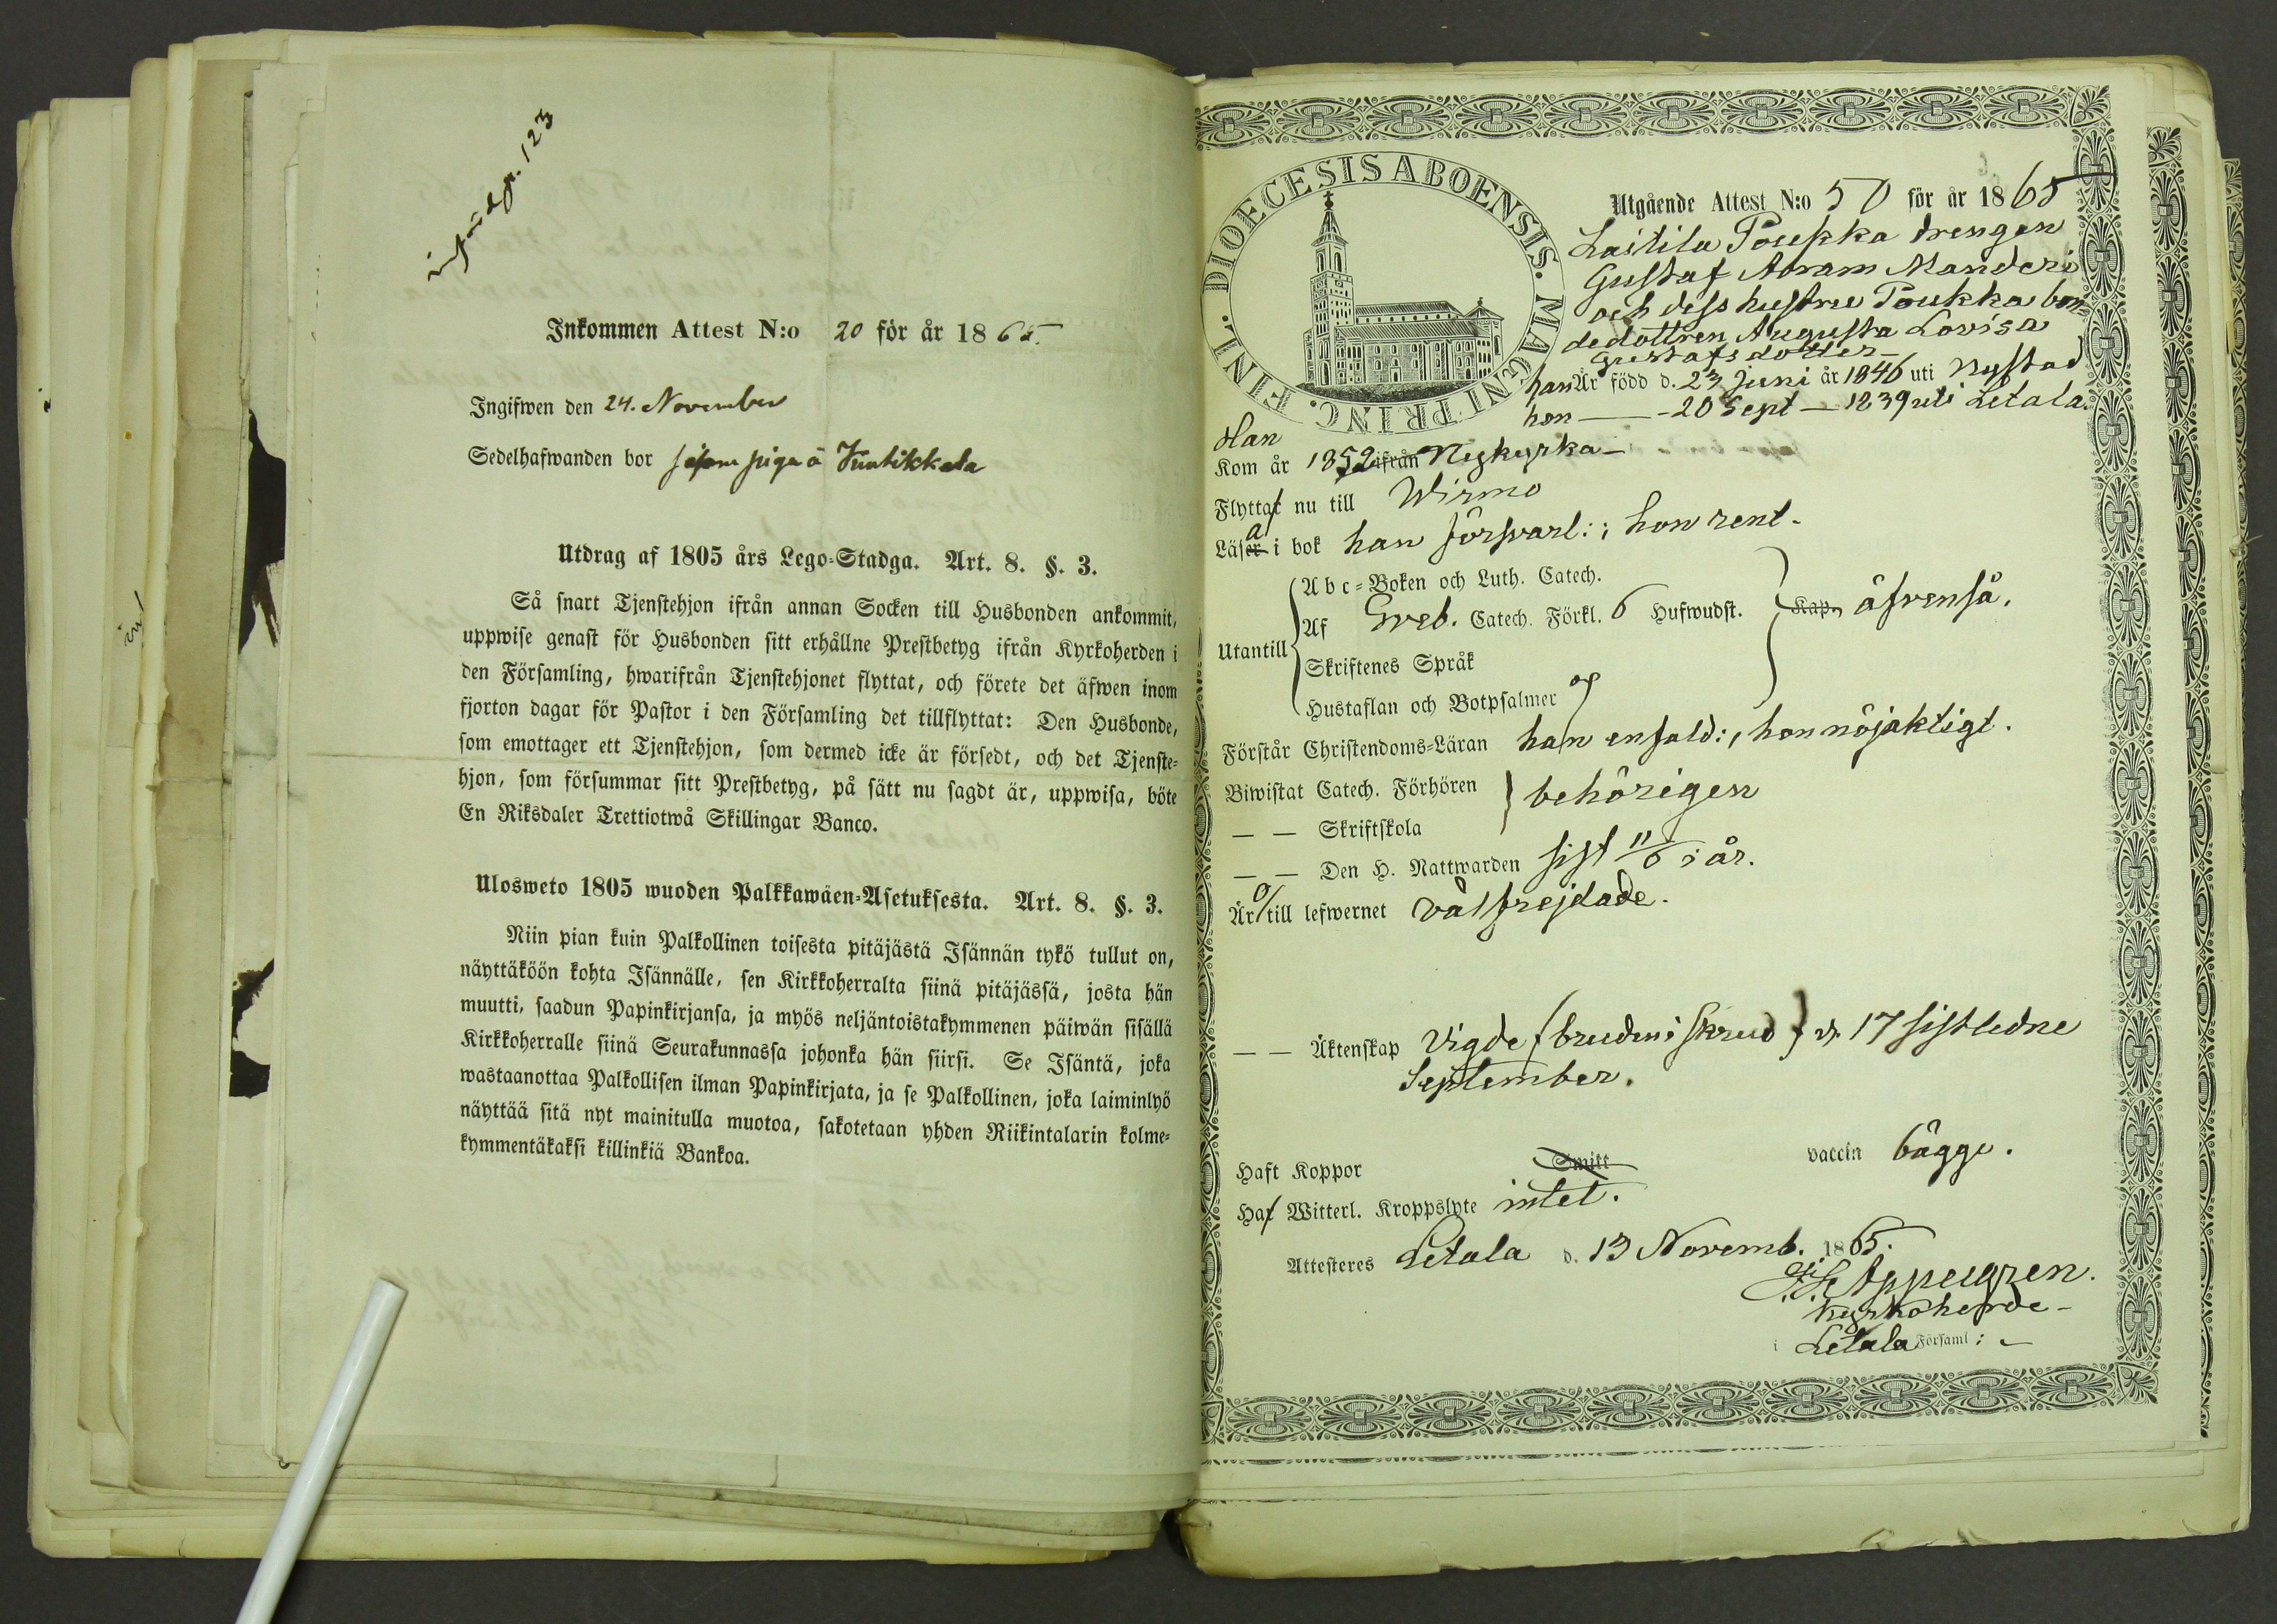 införd p. 123
Inkommen Attest N:o 20 för år 1865.
Ingifwen den 24. November
Sedelhafwanden bor såsom piga å Kuntikkala
Utdrag af 1805 års Lego-Stadga. Art. 8. §. 3.
Så snart Tjenstehjon ifrån annan Socken till Husbonden ankommit,
uppwise genast för Husbonden sitt erhållne Prestbetyg ifrån Kyrkoherden i
den Församling, hwarifrån Tjenstehjonet flyttat, och förete det äfwen inom
fjorton dagar för Pastor i den Församling det tillflyttat: Den Husbonde,
som emottager ett Tjenstehjon, som dermed icke är försedt, och det Tjenste-
hjon, som försummar sitt Prestbetyg, på sätt nu sagdt är, uppwisa, böte
En Riksdaler Trettiotwå Skillingar Banco.
Ulosweto 1805 wuoden Palkkawäen-Asetuksesta. Art. 8. §. 3.
Niin pian kuin Palkollinen toisesta pitäjästä Isännän tykö tullut on,
näyttäköön kohta Isännälle, sen Kirkkoherralta siinä pitäjässä, josta hän
muutti, saadun Papinkirjansa, ja myös neljäntoistakymmenen päiwän sisällä
Kirkkoherralle siinä Seurakunnassa johonka hän siirsi. Se Isäntä, joka
wastaanottaa Palkollisen ilman Papinkirjata, ja se Palkollinen, joka laiminlyö
näyttää sitä nyt mainitulla muotoa, sakotetaan yhden Riikintalarin kolme-
kymmentäkaksi killinkiä Bankoa.
DIOECESIS ABOENSIS. MAGNI PRINC. FINL.
Utgående Attest N:o 50 för år 1865
Laitila Poukka drengen
Gustaf Abram Mander
och dess hustru Poukka bon-
dedottren Augusta Lovisa
Gustafsdotter
han Är född d. 23 Juni år 1846 uti Nystad
hon — - 20 Sept — 1239 uti Letala.
Han
Kom år 1852 ifrån Nykyrka -
Flyttat nu till Wirmo
Läsa i bok han försvarl:; hon rent.
Utantill
Abc-Boken och Luth. Catech.
Af Sveb. Catech. Förkl. 6 Hufwudst. Kap. äfvenså.
Skriftenes Språk
Hustaflan och Botpsalmer
Förstår Christendoms-Läran han enfald:, hon nöjaktigt.
Biwistat Catech. Förhören behörigen
— — Skriftskola
— — Den H. Nattwarden sist 11/6 i år.
Är till lefwernet välfrejdade.
— — Äktenskap vigde (bruden i skrud) d. 17 sistledne
September.
Haft Koppor Smitt vaccin bägge.
Haf Witterl. Kroppslyte intet.
Attesteres Letala d. 13 Novemb. 1865.
Appelgren.
Kyrkoherde -
i Letala Församl: -